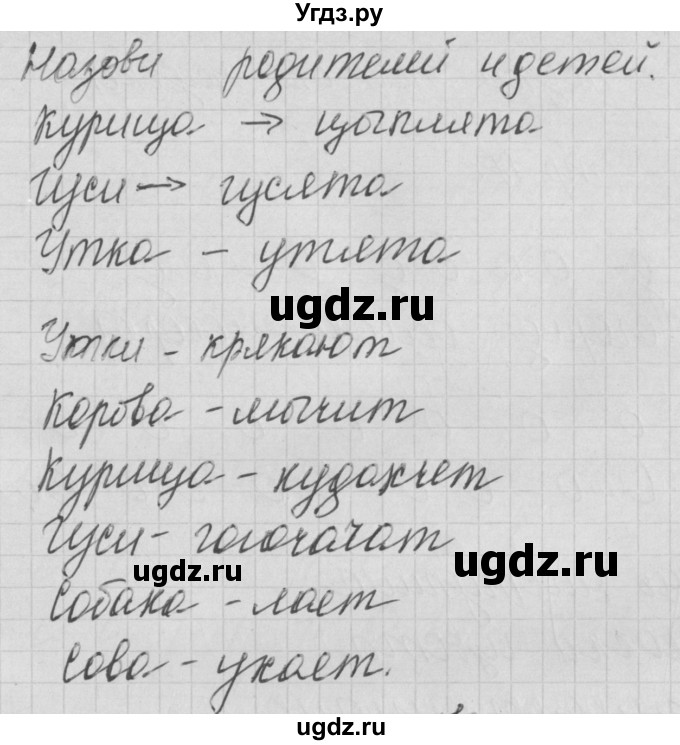 Угдз.ру
Назови родителей и детей.
Курица → цыплята
Гуси → гусята
Утка – утята
ugdz.ru
Утки – крякают
Корова – мычит
Курица – кудахчет
Гуси – гогочачат
ugdz.ru
ugdz.ru
Собака – лает
Сова – ухает.
ugdz.ru